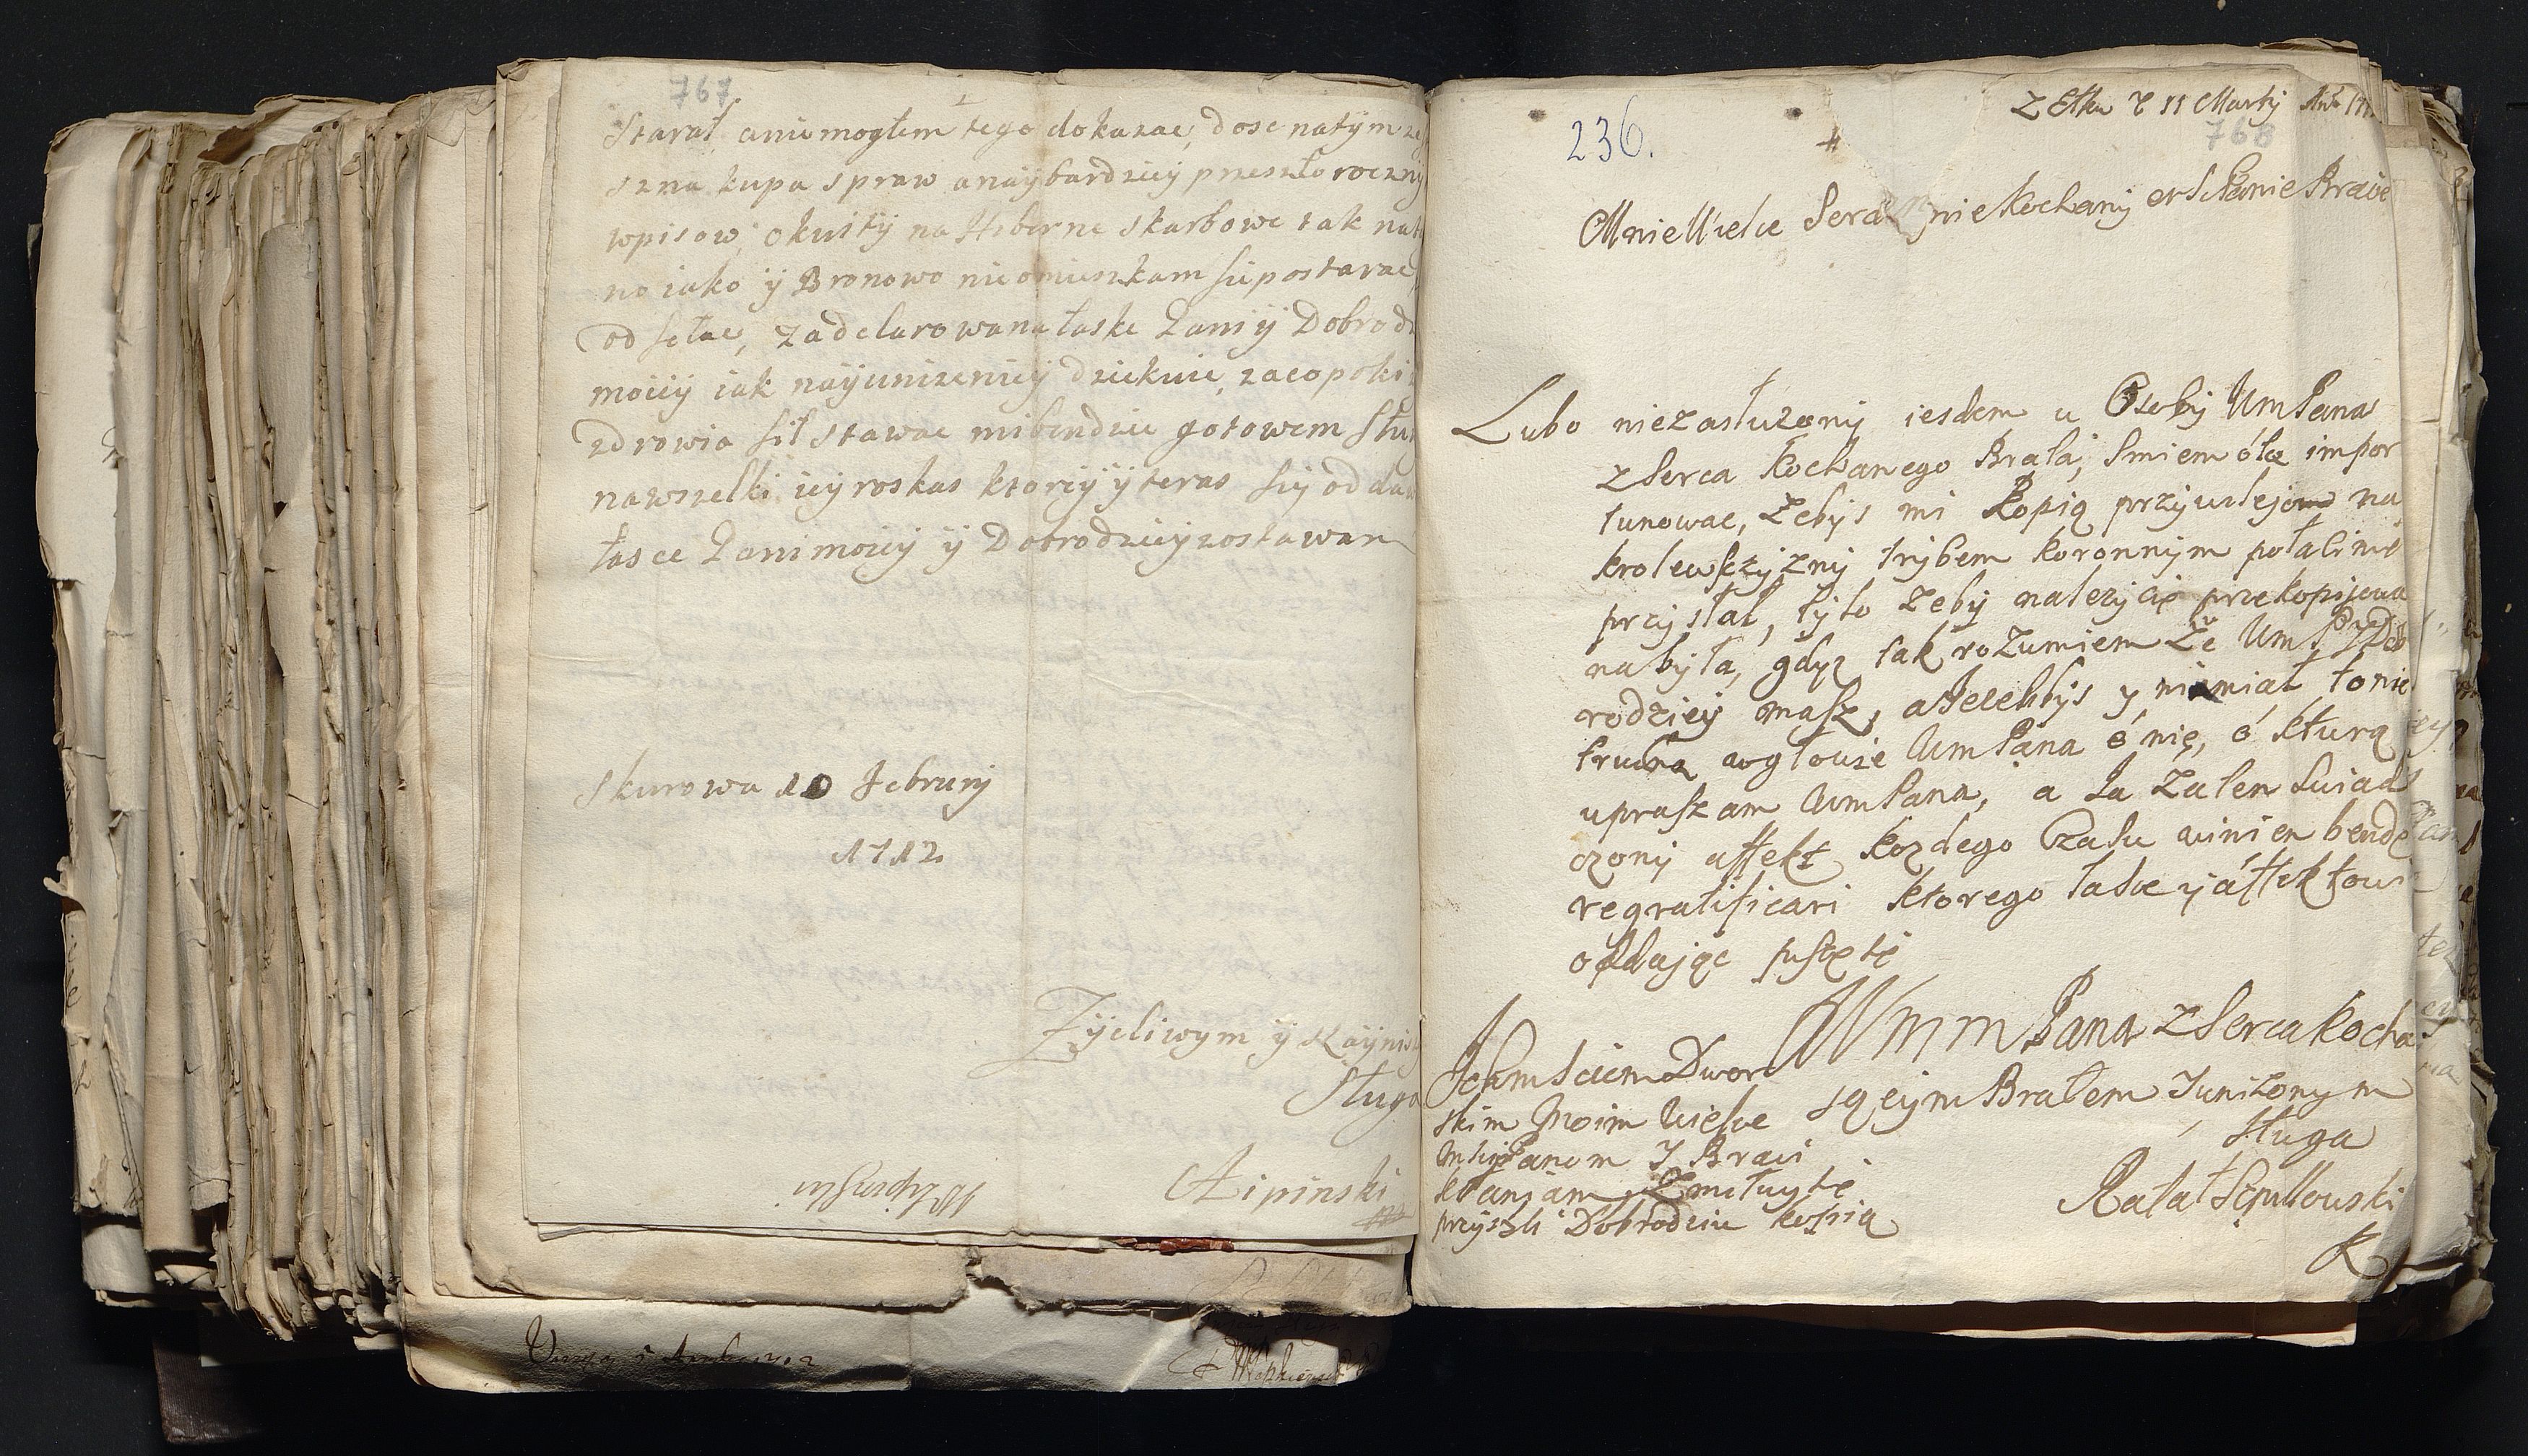 767
Starał aniemogłem tego dokazac, dosc natym ze
szna kupa spraw anaybardziey przeszło roczny
wpisow, okwity na Hiberne skarbowe tak nat
no iako y Bronowo nieomieszkam sie postarac
odsełac, zadelarowana łaske Paniy Dobrodz
moiey iak nayunizeniey dziekuie, zaco poki
zdrowia sił stawac mibendzie gotowem słuz
nawszelki iey roskas ktoryy teras sie oddaw
łasce Panimoiey y Dobrodziey zostawam
Skurowa 10 Februrÿ
1712
Zÿcliwym ÿ Nayni
Sługa
ALipinski
236.
768
z Ełku d 11 Martÿ
Mnie Wielce Serdecznie kochany Panie Bracie
Lubo niezasłuzony iesdem u Osoby Um Pana
z Serca kochanego Brata, smiem óto impor
tunowac, Zebys mi kopią przywilejow na
krolewszczyzny trybem koronnym
przysłał, tylo zeby nalezycie przekopijowa
na była, gdyz tak rozumiem Ze Um P Dob
rodziey masz, a Jezelibys y niemiał to nie
trudna wgłowie Um Pana ó nię, ó kturą
upraszam Um Pana, a Ja Zaten swiad
czony affekt kozdego Czasu winien bende
regratificari ktorego łasce y áffektow
oddając pissę się
Wmm Pana z Serca kocha
jącym Bratem Y unizonym
sługa
Rafał Szpilłowski
Ichmsciem Dwor
skim Moim Wielce
Panom Y Braci
kłaniam Zmiłuy się
przyszli Dobrodziu kopią